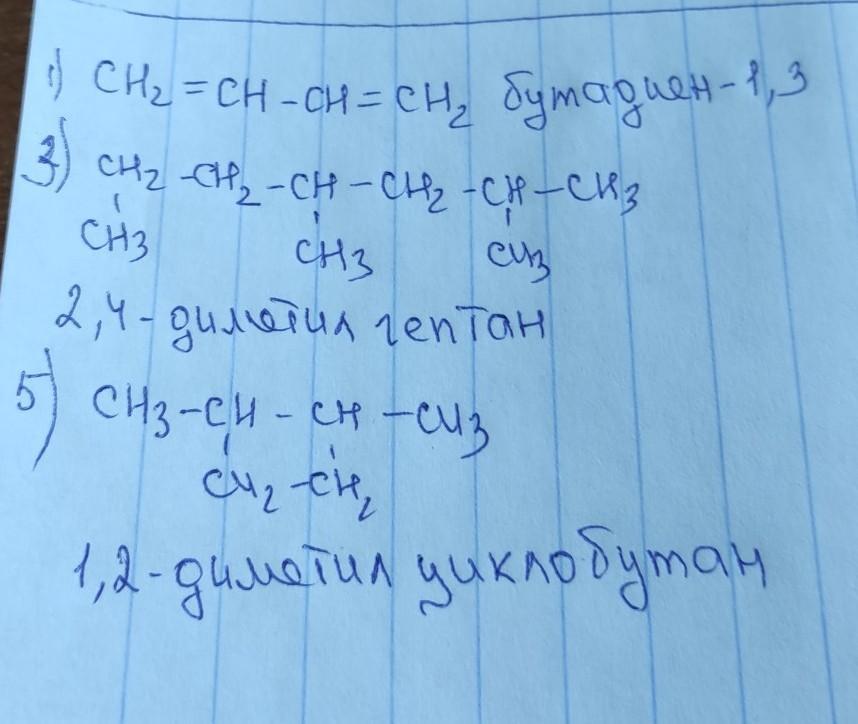 1) CH₂=CH-CH=CH₂ бутадиен-1,3
3) CH₂-CH₂-CH-CH₂-CH-CH₃
CH₃ CH₃ CH₃
2,4-диметил гептан
5) CH₃-CH-CH-CH₃
CH₂-CH₂
1,2-диметил циклобутан